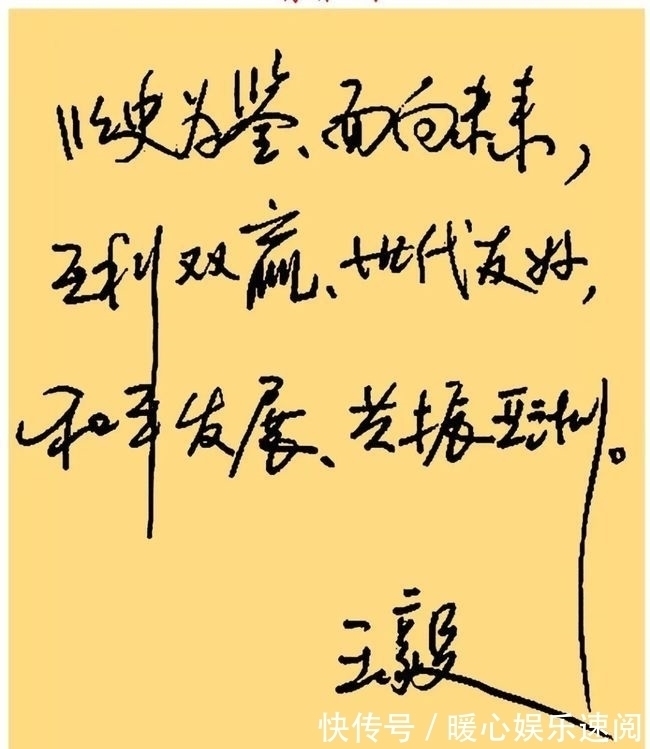 以史为鉴、面向未来，
互利双赢、世代友好，
和平发展、共振亚洲。
王毅
快传号 / 暖心娱乐速阅